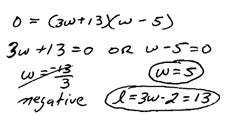 0 = (3w+13)(w-5)
3w+13=0 OR w-5=0
w=-13/3 w=5
negative l=3w-2=13